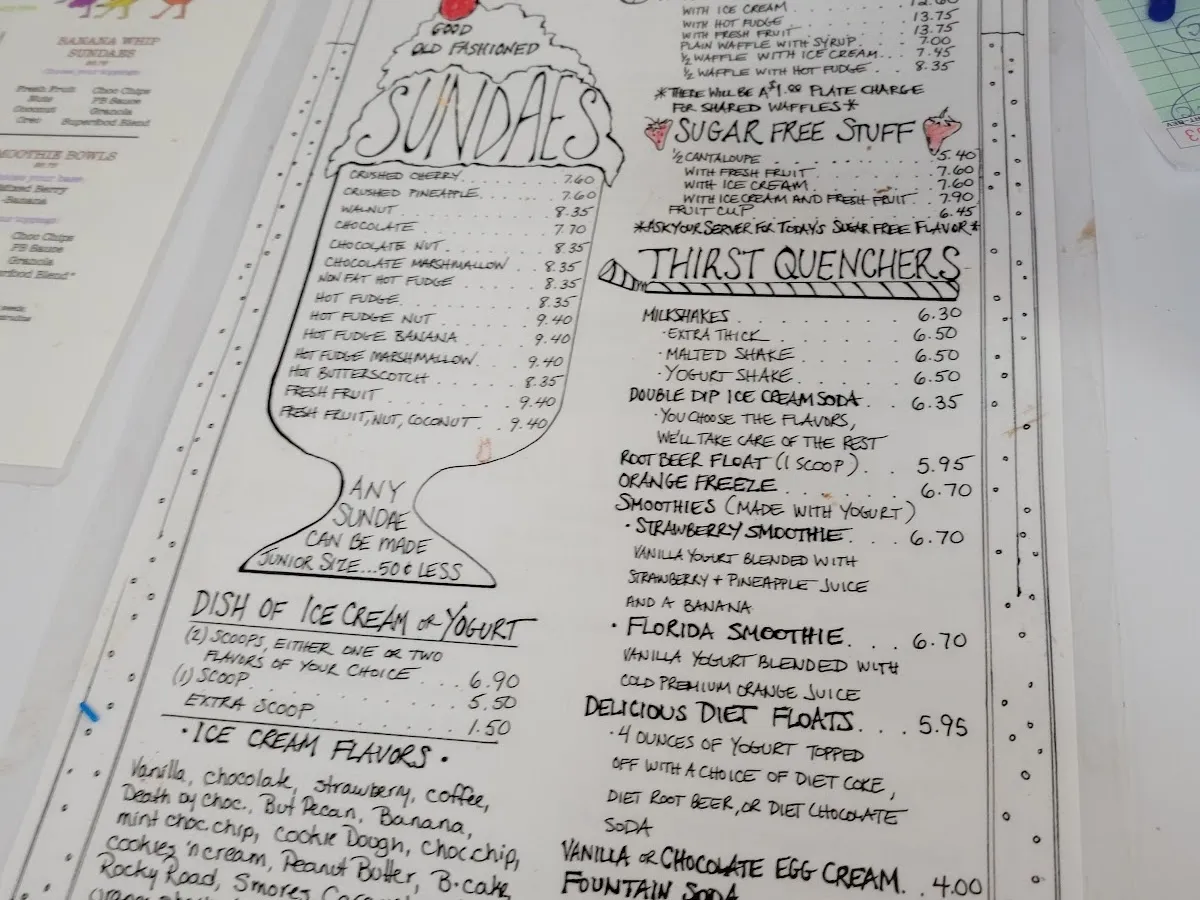 BANANA WHIP
SUNDAES
Fresh Fruit Choc Chips
Nuts PB Sauce
Coconut Granola
Oreo Superfood Blend
SMOOTHIE BOWLS
Berry
Banana
Choc Chips
PB Sauce
Granola
Blend*
GOOD
OLD FASHIONED
SUNDAES
CRUSHED CHERRY. . . . . . . 7.60
CRUSHED PINEAPPLE. . . . . . . 7.60
WALNUT . . . . . . . 8.35
CHOCOLATE . . . . . . . 7.70
CHOCOLATE NUT. . . . . . 8.35
CHOCOLATE MARSHMALLOW . . 8.35
NON FAT HOT FUDGE . . . . . 8.35
HOT FUDGE. . . . . . . 8.35
HOT FUDGE NUT . . . . . . 9.40
HOT FUDGE BANANA . . . . . 9.40
HOT FUDGE MARSHMALLOW. . . . 9.40
HOT BUTTERSCOTCH . . . . . 8.35
FRESH FRUIT . . . . . . . 9.40
FRESH FRUIT, NUT, COCONUT . . . 9.40
ANY
SUNDAE
CAN BE MADE
JUNIOR SIZE...50¢ LESS
DISH OF ICE CREAM or YOGURT
(2) SCOOPS, EITHER ONE OR TWO
FLAVORS OF YOUR CHOICE . . . 6.90
(1) SCOOP . . . . . . . 5.50
EXTRA SCOOP. . . . . . . 1.50
• ICE CREAM FLAVORS •
Vanilla, chocolate, strawberry, coffee,
Death by choc., But Pecan, Banana,
mint choc.chip, Cookie Dough, choc.chip,
cookies 'n cream, Peanut Butter, B.cake,
Rocky Road, Smores
WITH ICE CREAM. . . . . . .
WITH HOT FUDGE . . . . . . 13.75
WITH FRESH FRUIT . . . . . 13.75
PLAIN WAFFLE WITH SYRUP . . . 7.00
½ WAFFLE WITH ICE CREAM... 7.45
½ WAFFLE WITH HOT FUDGE . . . 8.35
*THERE WILL BE A $1.00 PLATE CHARGE
FOR SHARED WAFFLES*
SUGAR FREE STUFF
½ CANTALOUPE . . . . . . . 5.40
WITH FRESH FRUIT . . . . . . 7.60
WITH ICE CREAM. . . . . . . 7.60
WITH ICE CREAM AND FRESH FRUIT . 7.90
FRUIT CUP . . . . . . . 6.45
*ASK YOUR SERVER FOR TODAY'S SUGAR FREE FLAVOR*
THIRST QUENCHERS
MILKSHAKES . . . . . . . 6.30
• EXTRA THICK . . . . . . 6.50
• MALTED SHAKE . . . . . 6.50
• YOGURT SHAKE. . . . . . 6.50
DOUBLE DIP ICE CREAM SODA. . . 6.35
• YOU CHOOSE THE FLAVORS,
WE'LL TAKE CARE OF THE REST
ROOT BEER FLOAT (1 SCOOP). . . 5.95
ORANGE FREEZE. . . . . . . 6.70
SMOOTHIES (MADE WITH YOGURT)
• STRAWBERRY SMOOTHIE. . . . 6.70
VANILLA YOGURT BLENDED WITH
STRAWBERRY + PINEAPPLE JUICE
AND A BANANA
• FLORIDA SMOOTHIE. . . . 6.70
VANILLA YOGURT BLENDED WITH
COLD PREMIUM ORANGE JUICE
DELICIOUS DIET FLOATS. . . 5.95
• 4 OUNCES OF YOGURT TOPPED
OFF WITH A CHOICE OF DIET COKE,
DIET ROOT BEER, OR DIET CHOCOLATE
SODA
VANILLA OR CHOCOLATE EGG CREAM. . 4.00
FOUNTAIN SODA